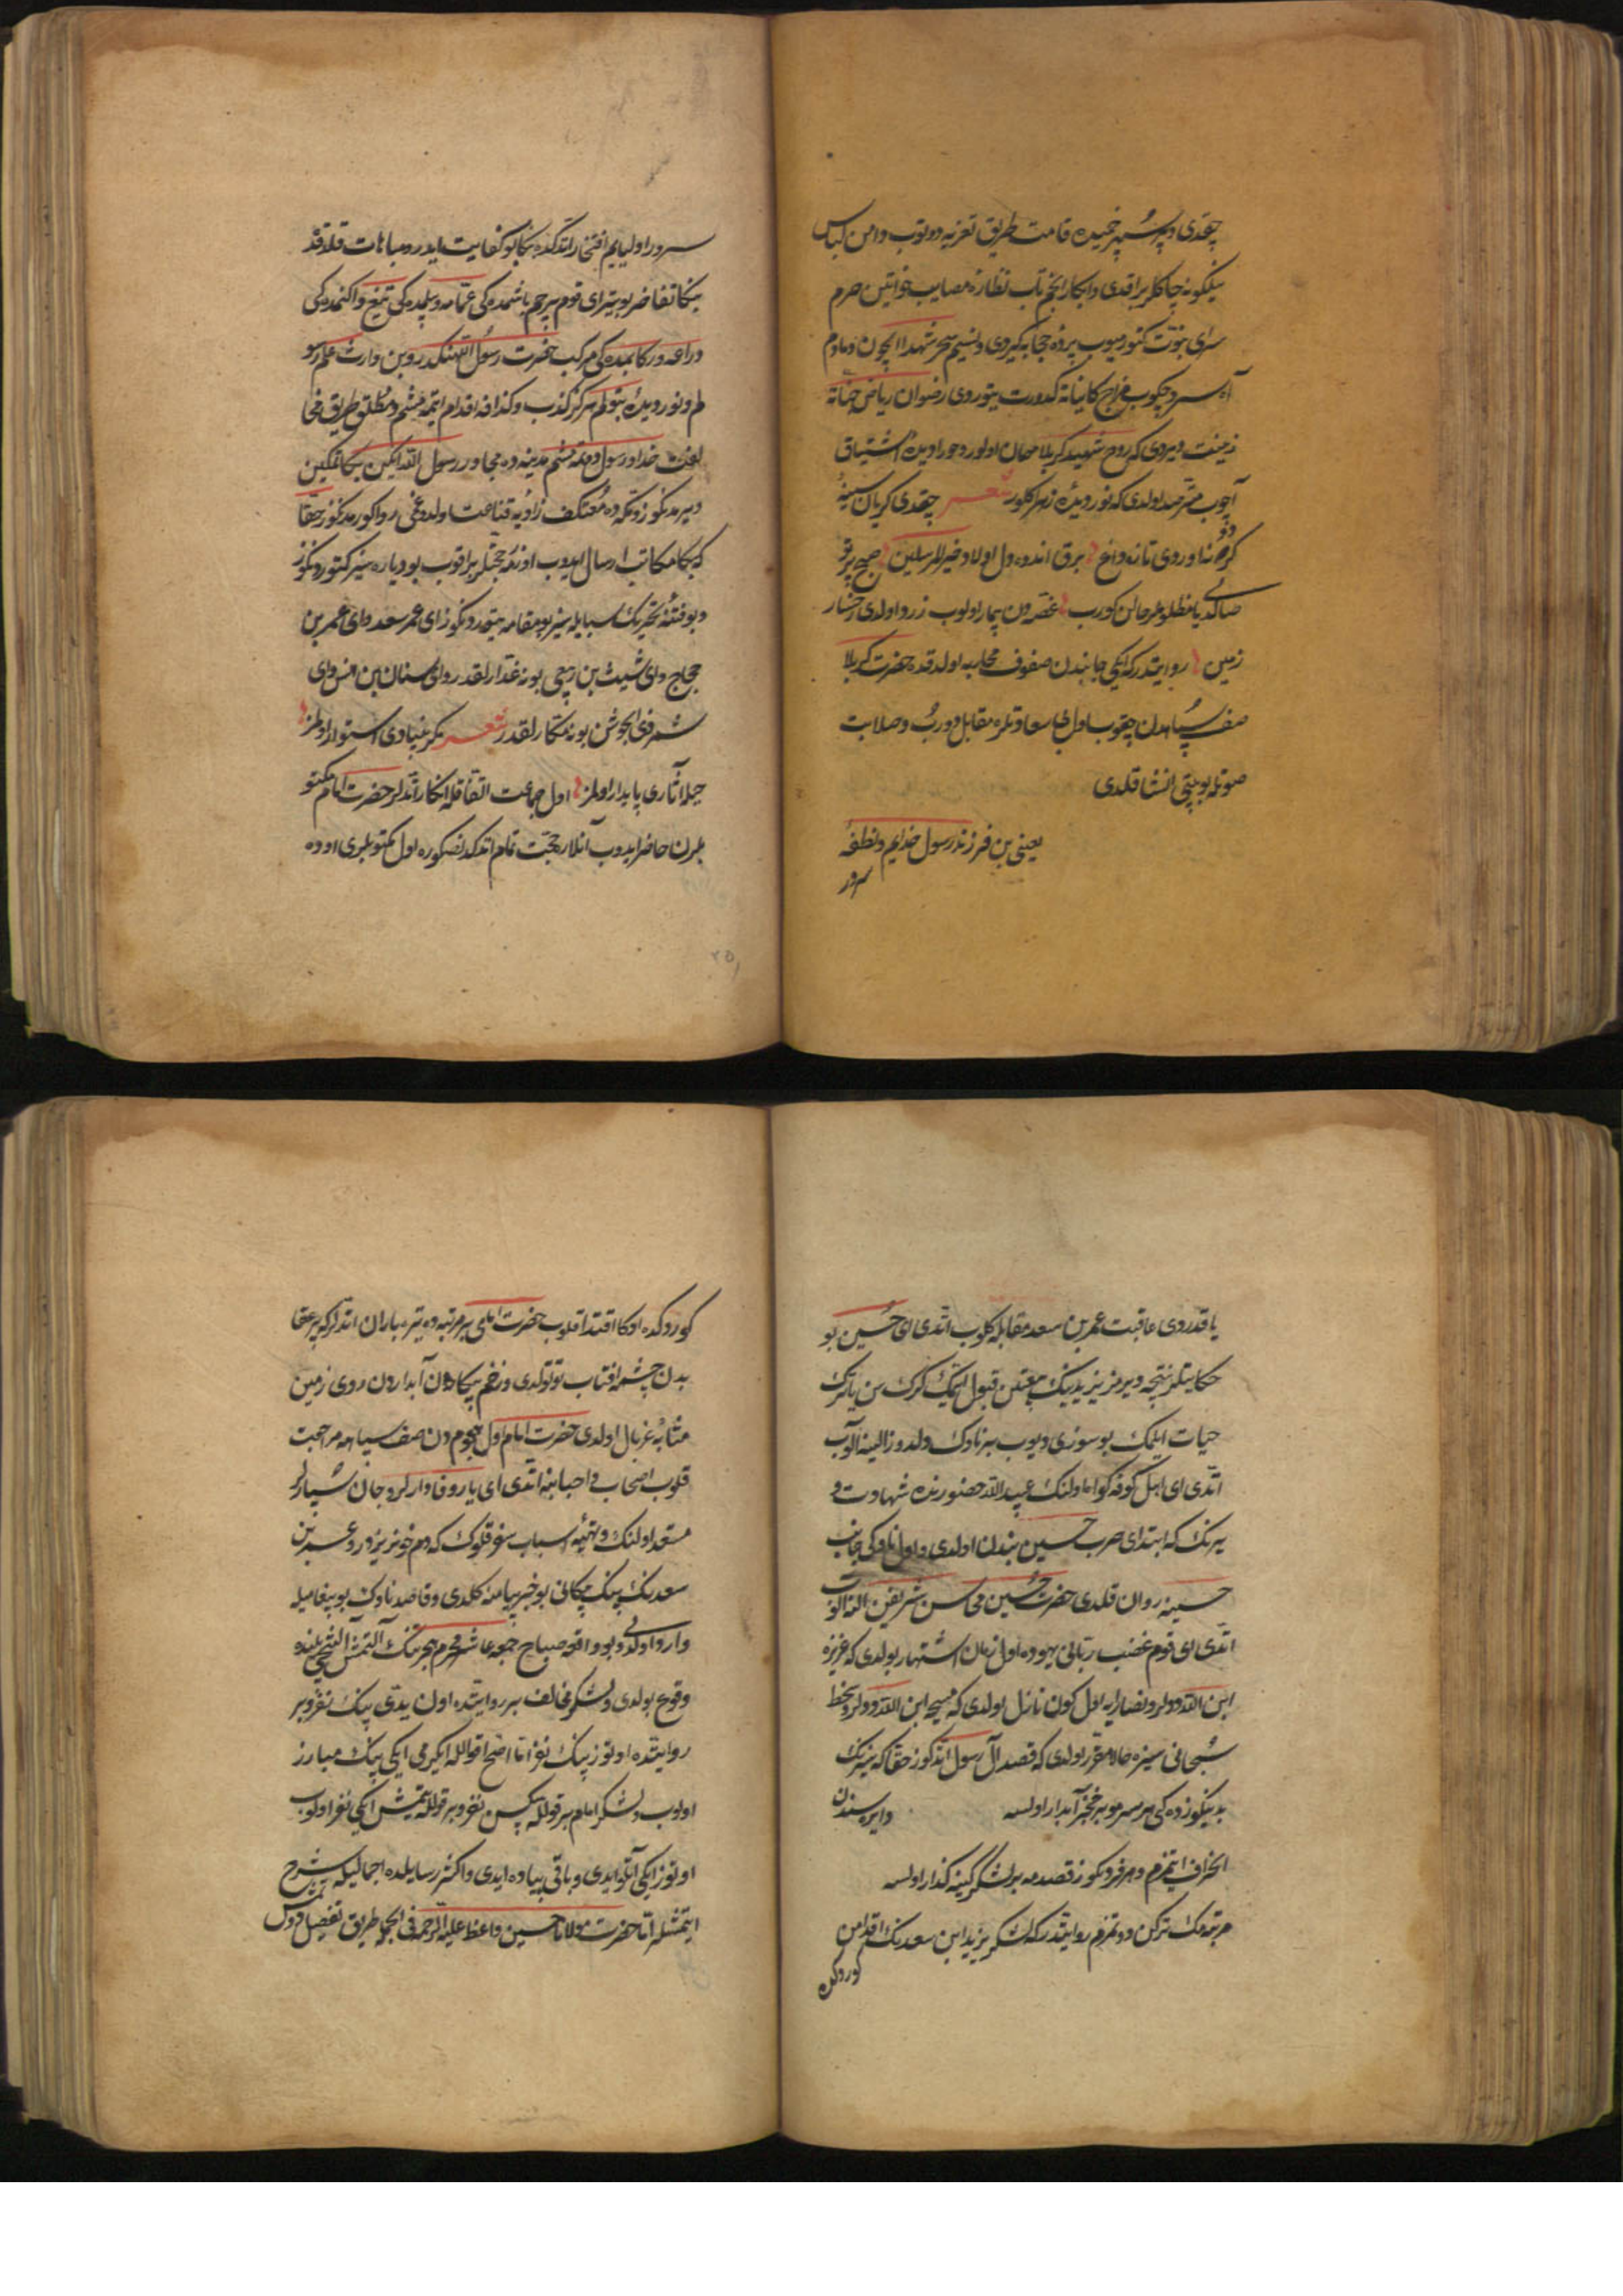 چقدی و سپهر خمیده قامت طریق تعزیه دوتوب دامن لباس
نیلگونه چاکلر براقدی و ابکار انجم تاب نظاره مصایب خواتین حرم
سرای نبوت کتورمیوب پرده حجابه کیردی و نسیم سحر شهدا ایچون دمادم
آه سرد چکوب مزاج کایناته کدورت یتوردی رضوان ریاض جنانه
زینت ویردی که روح شهید کربلا مهمان اولور و حورا دیده اشتیاق
آچوب مترصد اولدی که نور دیده زهرا کلور شعر چقدی کریان سینهٔ
کردونه اوردی تازه داغ برق اندوه دل اولاد خیر المرسلین صبح پرتو
صالدی یا مظلوملر حالن کورب غصه دن بیمار اولوب زرد اولدی رخسار
زمین روایتدر که ایکی جانبدن صفوف محاربه اولدقده حضرت کربلا
صف سپاهدن چقوب اول بی سعادتلره مقابل دورب و صلابت
صوتله بو بیتی انشا قلدی
یعنی بن فرزند رسول خدایم و نطفهٔ
سرور
سرور اولیایم افتخار اتدکده بکا بو کفایت ایدر و مباهات قلدقده
بکا تفاخر بو یتر ای قوم پرچم باشمده کی عمامه و بلمده کی تیغ و اکنمده کی
دراعه و رکابمده کی مرکب حضرت رسول اللهنکدر و بن وارث علم رسو
لم و نور دیدهٔ بتولم هرکز کذب و کذافه اقدام ایتمه مشم و مطلق طریق مخا
لفت خدا و رسول دوتمه مشم مدینه ده مجاور رسول الله ایکن بکا تمکین
ویرمدنکوز و مکه ده معتکف زاویه قناعت اولدوغمی روا کورمدنکوز حقا
که بکا مکاتب ارسال ایدوب اوزمه حجتلر براقوب بو دیاره سیز کتوردنکوز
و بو فتنه تحریک اسبابیله سیز بو مقامه یتوردنکوز ای عمر سعد و ای عمر بن
حجاج و ای شیث بن ربعی بو نه غدارلقدر و ای سنان بن انس و ای
شمر ذی الجوشن بو نه مکارلقدر شعر مکر بنیادی استوار اولمز
حیله آثاری پایدار اولمز اول جماعت اتفاقله انکار اتدلر حضرت امام مکتو
بلرن حاضر ایدوب آنلاره حجت تمام اتدکدنصکره اول مکتوبلری اوده
یاقدردی عاقبت عمر بن سعد مقابله کلوب اتدی ای حسین بو
حکایتلر نتیجه ویرمز یزیدینک بیعتن قبول ایتمک کرک سن یا ترک
حیات ایلمک بو سوزی دیوب بر ناوک دلدوز الینه آلوب
اتدی ای اهل کوفه کواه اولنک عبید الله حضورنده شهادت
ویرنک که ابتدای حرب حسین بندن اولدی و اول ناوکی جانب
حسینه روان قلدی حضرت حسین محاسن شریفن النه آلوب
اتدی ای قوم غضب ربانی یهوده اول زمان اشتهار بولدی که عزیزه
ابن الله دیدلر و نصارایه اول کون نازل اولدی که مسیحه ابن الله دیدلر و سخط
سبحانی سیزه حالا مقرر اولدی که قصد آل رسول اتدکوز حقا که سیزنک
بدنیکوزده کی هر سر مو بر خنجر آبدار اولسه دایره سندن
انحراف ایتمزم و هر فردنکوز قصدمه بر لشکر کینه کذار اولسه
مرتبه مک ترکن دوتمزم روایتدر که لشکر یزید ابن سعدنک اقدامن
کوردکده
کوردکده اوکا اقتدا قلوب حضرت امامی بر مرتبه ده تیرباران اتدلر که پر عقا
بدن چشمه افتاب توتولدی و زخم پیکان آبداردن روی زمین
مثابهٔ غربال اولدی حضرت امام اول هجوم دن صف سپاهه مراجعت
قلوب اصحاب و احبابنه اتدی ای یار وفادارلر و جان سپارلر
مستعد اولنک و تهیه اسباب سفر قلوک که دم خونریزدور و عمر بن
سعدنک پیک پیکانی بو خبر پیامنه کلدی و قاصد ناوک بو پیغامیله
وارد اولدی و بو واقعه صباح جمعه عاشر محرم هجرتنک آلتمش النجی یلنده
وقوع بولدی و لشکر مخالف بر روایتده اون یدی بیک نفر و بر
روایتده اوتوز بیک نفر اما اصح اقوالله ایکرمی ایکی بیک مبارز
اولوب و لشکر امام بر قولله سکسن نفر و بر قولله یتمش ایکی نفر اولوب
اوتوز ایکی آتلو ایدی و باقی پیاده ایدی و اکثر رسایلده اجمالیله شرح
ایتمشلر اما حضرت مولانا حسین واعظ علیه الرحمه فی الجمله طریق تفصیل دوتمش